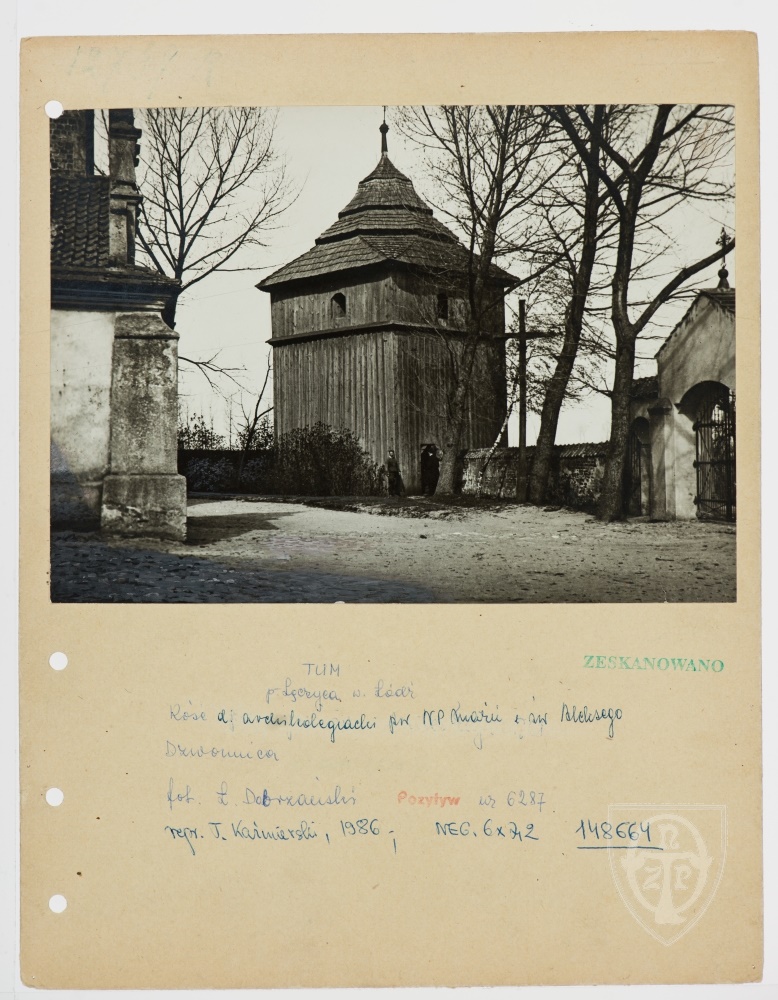 ZESKANOWANO
TUM
p. Łęczyca w. Łódź
Kośc. d. archikolegiacki pw. NP Marii i św. Aleksego
Dzwonnica
fot. Ł. Dobrzański Pozytyw nr 6287
repr. T. Kaźmierski, 1986 ; NEG. 6x7,2 148664